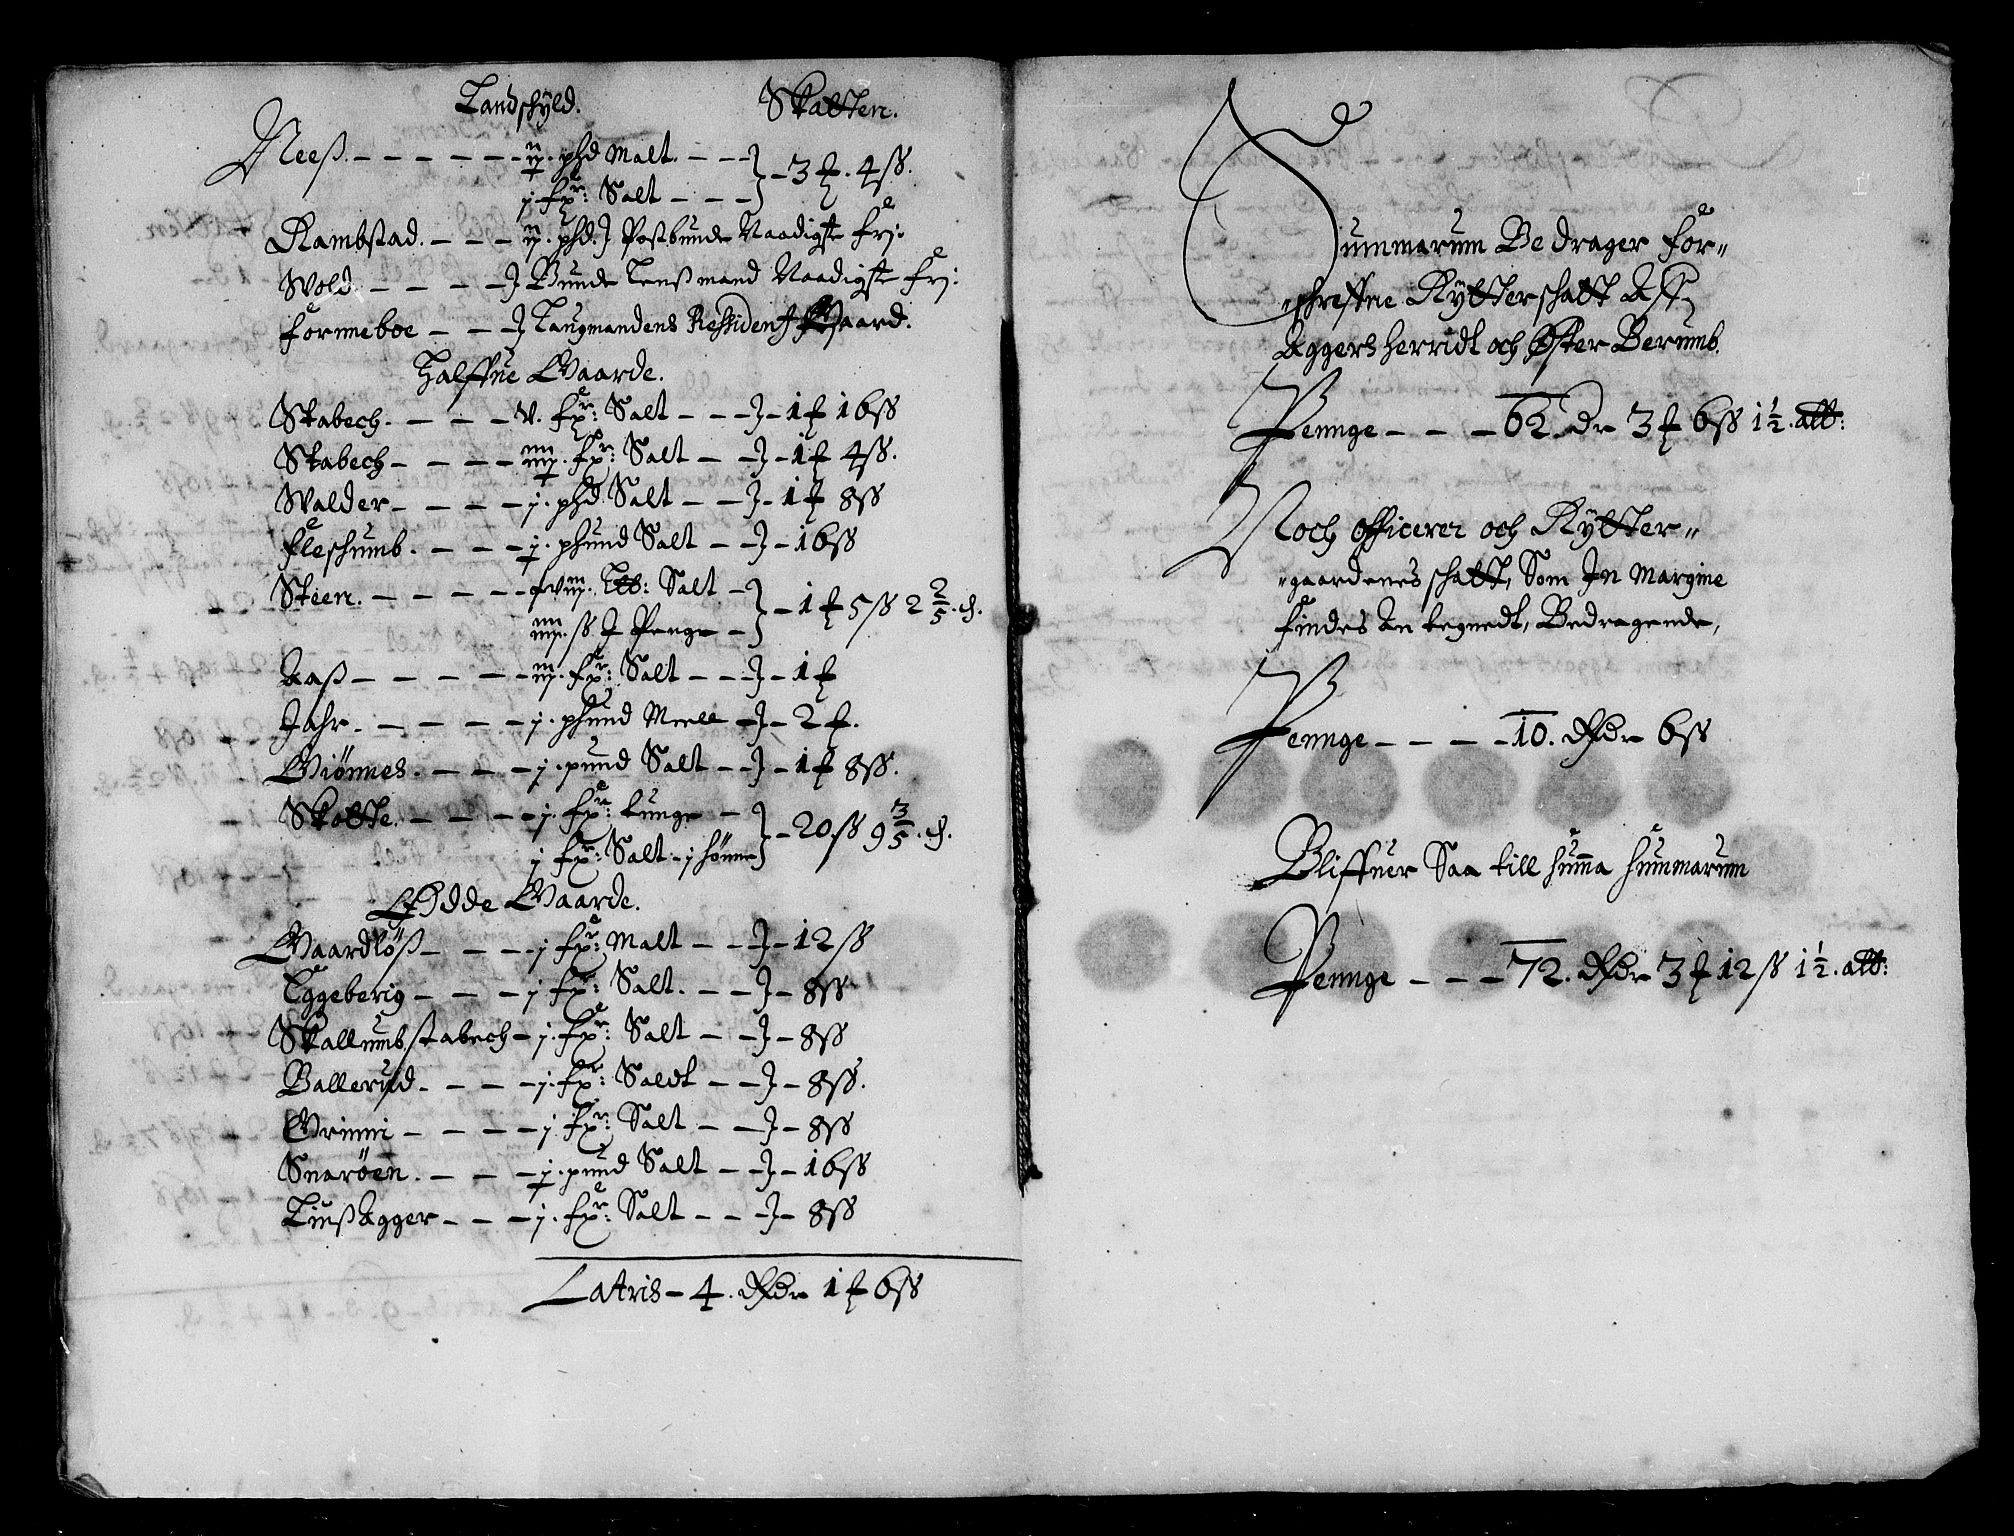 Landschyld. Skatten.
Neeß. – – – – – – ij. phd Malt. – – – } – 3 ʄ. 4 ss.
j. fxr: Salt – – –
Rambstad. – – – ij. phd. } Postbunde Naadigste Frj:
Wold. – – – – } Bunde Lenßmand Naadigste Frj:
Fornneboe – – – } Laugmandens Ressidentz Gaard.
Halffue Gaarde.
Stabech. – – – – v. fxr: Salt – – – } – 1 ʄ 16 ss
Stabech – – – – iiij. fxr: Salt – – } – 1 ʄ 4 ss.
Walder – – – – j. phd. Salt – – } – 1 ʄ 8 ss
Fleschumb. – – – j. phund Salt – – } – 16 ss
Steen. – – – – – viij. Lib: Salt – } – 1 ʄ 5 ss 2 2/5. ₰.
iiij. ss J Penge –
Aaß – – – – – iij. fxr: Salt – – } – 1 ʄ
Jahr. – – – – – j. phund Meell – } – 2 ʄ.
Giönnes. – – – – j. pund Salt – – } – 1 ʄ 8 ss.
Skolte. – – – – j. fxr: tunge – } – 20. ss 9 3/5. ₰.
j fxr: Salt – j hönne
Ødde Gaarde.
Gaardløß – – – – j fxr: Malt – – } – 12 ss
Eggeberig – – – – j fxr: Salt. – – } – 8 ss
Skallumbstabech – j. fxr: Salt – – } – 8 ss
Ballerud – – – – j. fxr: Saldt – – } – 8 ss.
Grinni – – – – – j. fxr: Salt – – } – 8 ss
Snarøen. – – – – j. pund Salt – – } – 16 ss
Ließagger – – – – j. fxr: Salt – – – } – 8 ss
Latris – 4. Rdr 1 ʄ 6 ss
Summarum Bedrager For-
schreffne Rytterschatt Aff
Aggers herridt och Øster Berumb.
Pennge – – – – 62. Dr 3 ʄ 6 ss 1 ½. alb:
Noch officerer och Rytter-
gaardenes schatt, Som In Margine
Findes An tegnedt, Bedragende,
Pennge – – – – 10. Rdr 6 ss
Bliffuer Saa till Summa Summarum
Pennge – – – 72. Rdr 3 ʄ 12 ss 1 ½. alb: